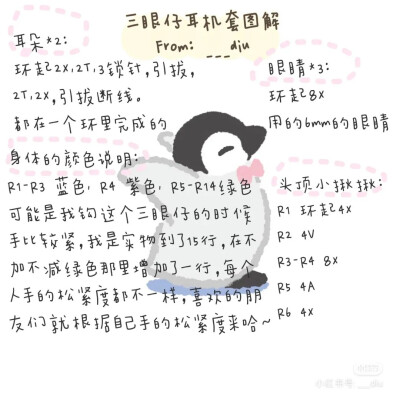 三眼仔耳机套图解
From: ___diu
耳朵*2:
环起2X,2T,3锁针,引拔,
2T,2X,引拔断线。
都在一个环里完成的
眼睛*3:
环起8X
用的6mm的眼睛
身体的颜色说明:
R1-R3 蓝色, R4 紫色, R5-R14绿色
可能是我钩这个三眼仔的时候
手比较紧,我是实物到了15行,在不
加不减绿色那里增加了一行,每个
人手的松紧度都不一样,喜欢的朋
友们就根据自己手的松紧度来哈~
头顶小揪揪:
R1 环起4X
R2 4V
R3-R4 8X
R5 4A
R6 4X
小红书号:___diu